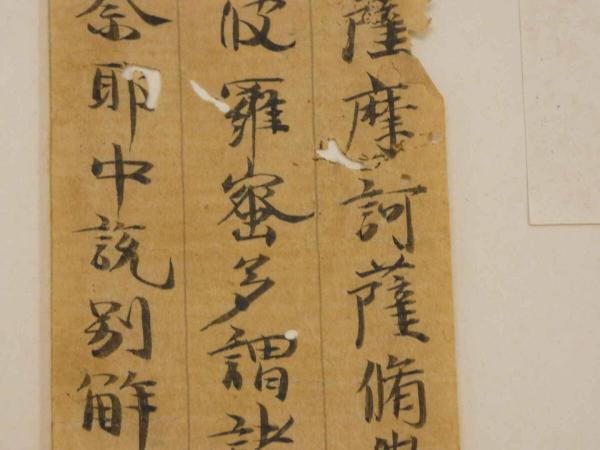 薩摩訶薩脩
波羅蜜多謂諸
奈耶中説別解